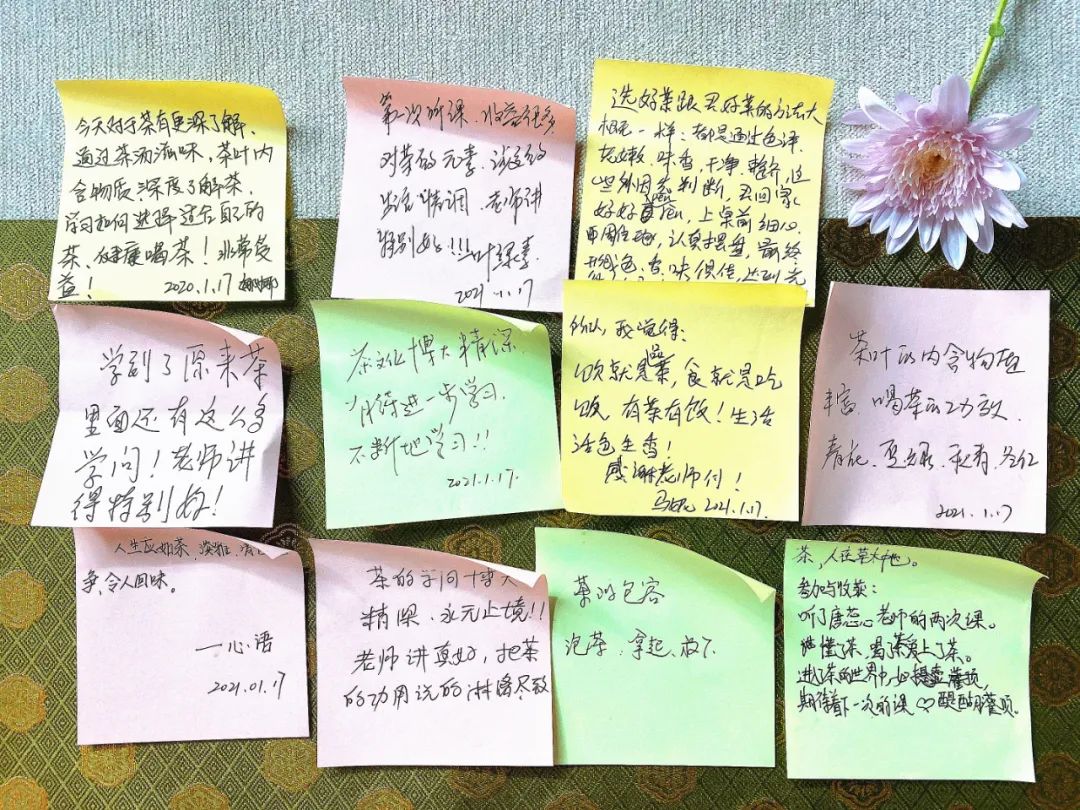 今天对于茶有更深了解、
通过茶汤滋味、茶叶内
含物质、深度了解茶、
学习如何选择适合自己的
茶、健康喝茶！非常受
益！
2020.1.17
第二次听课、收益很多
对茶的元素、
生活情调、老师讲
特别好!!!
2021.1.17
选好茶跟买好菜的方法大
相 一样：都是通过色泽、
老嫩、味香、干净、整齐，这
些外因去判断，买回家
好好 ，上桌前细心
认真摆盘，最终
色、香、味俱佳，达到
学到了原来茶
里面还有这么多
学问！老师讲
得特别好！
茶文化博大精深
值得进一步学习
不断地学习!!
2021.1.17.
所以，我觉得：
饮就是菜，食就是吃
饭 有茶有饭！生活
活色生香！
感谢老师付！
2021.1.17.
茶叶的内含物质
丰富、喝茶的功效、
春花、夏绿、秋青、冬红
2021.1.17
人生应如茶、淡雅、
争、令人回味。
一心语
2021.01.17
茶的学问博大
精深、永无止境!!
老师讲真好，把茶
的功用说的淋漓尽致
茶的包容
泡茶、拿起、放下
茶，人在草木也。
参加与收获：
听了唐蕊心老师的两次课。
懂了茶、喝了茶爱上了茶。
进了茶的世界中，如醍醐灌顶，
期待着下一次的课♡醍醐灌顶.